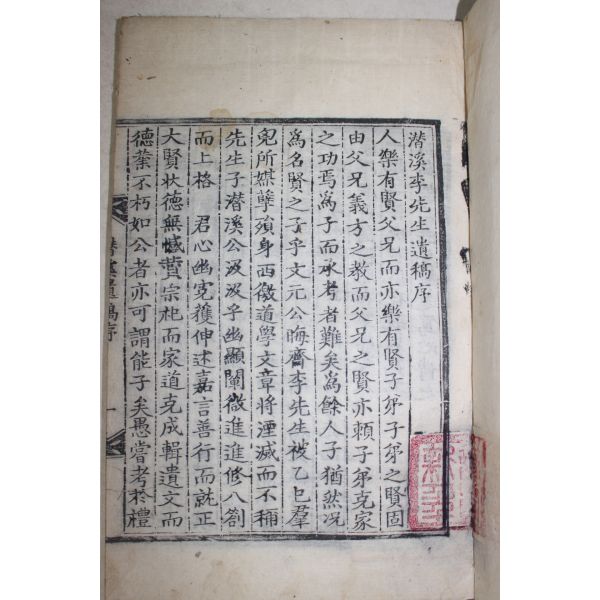 潛溪李先生遺稿序
人樂有賢父兄而亦樂有賢子弟子弟之賢固
由父兄義方之敎而父兄之賢亦賴子弟克家
之功焉爲子而承考者難矣爲餘人子猶然况
爲名賢之子乎文元公晦齋李先生被乙巳羣
兇所媒孽殞身西徼道學文章將湮滅而不稱
先生子潛溪公汲汲乎幽顯闡微進進修八劄
而上格　君心幽寃獲伸述嘉言善行而就正
大賢狀德無憾賛宗祀而家道克成輯遺文而
德業不朽如公者亦可謂能子矣愚嘗考於禮
潛溪遺稿序
一